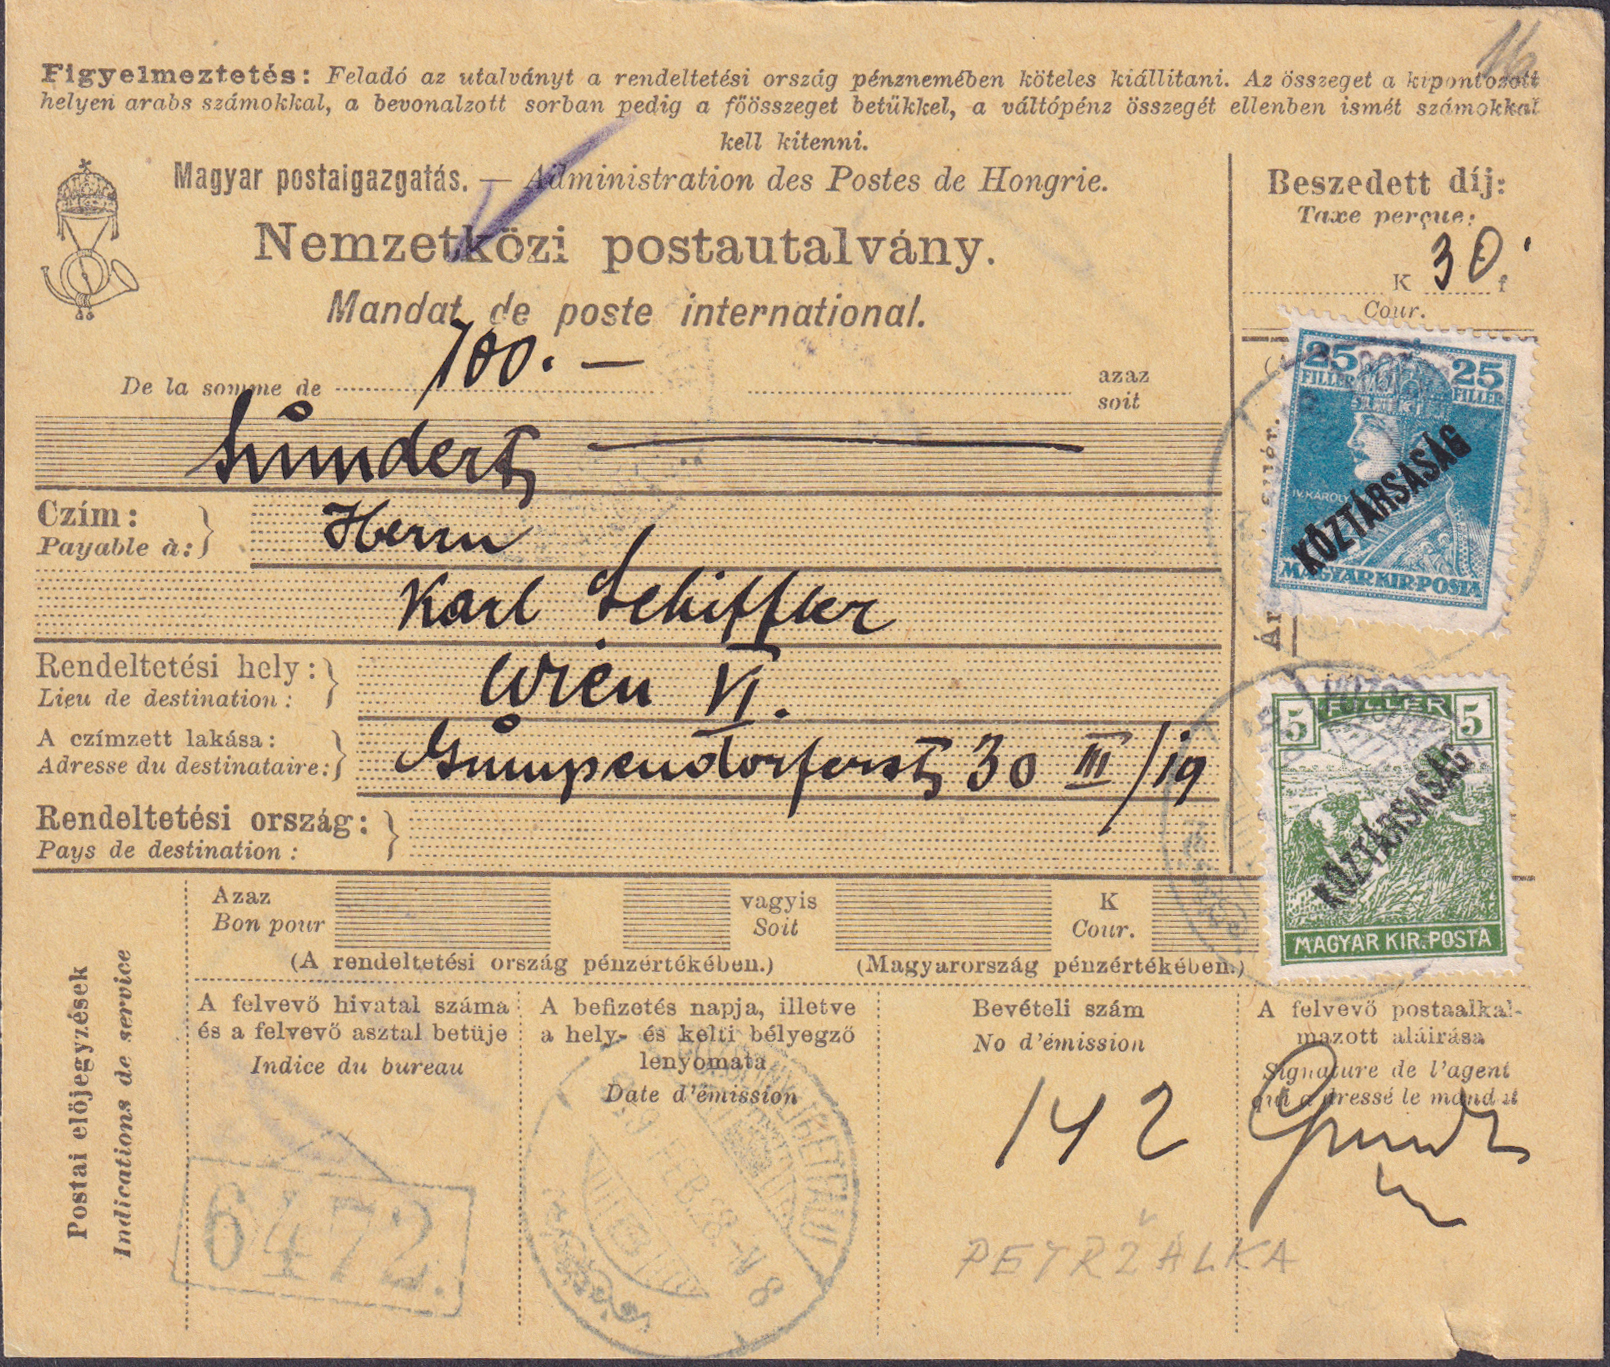 16
Figyelmeztetés: Feladó az utalványt a rendeltetési ország pénznemében köteles kiállitani. Az összeget a kipontozott
helyen arabs számokkal, a bevonalzott sorban pedig a főösszeget betükkel, a váltópénz összegét ellenben ismét számokkal
kell kitenni.
Magyar postaigazgatás. — Administration des Postes de Hongrie.
Nemzetközi postautalvány.
Mandat de poste international.
Beszedett díj:
Taxe perçue:
K 30 f
Cour.
De la somme de 100.—
azaz
soit
hundert
Czím:
Payable à:
Herrn
Karl Schiffler
Rendeltetési hely:
Lieu de destination:
Wien VI.
A czímzett lakása:
Adresse du destinataire:
Gumpendorferst 30 III/19
Rendeltetési ország:
Pays de destination:
25 25
FILLÉR FILLÉR
IV. KÁROLY
KÖZTÁRSASÁG
MAGYAR KIR. POSTA
5 FILLÉR 5
KÖZTÁRSASÁG
MAGYAR KIR. POSTA
Azaz
Bon pour
vagyis
Soit
K
Cour.
(A rendeltetési ország pénzértékében.)
(Magyarország pénzértékében.)
Postai előjegyzések
Indications de service
A felvevő hivatal száma
és a felvevő asztal betüje
Indice du bureau
A befizetés napja, illetve
a hely- és kelti bélyegző
lenyomata
Date d'émission
Bevételi szám
No d'émission
A felvevő postaalkal-
mazott aláirása
Signature de l'agent
qui a dressé le mandat
142
6472.
919 FEB. 28
PETRŽALKA